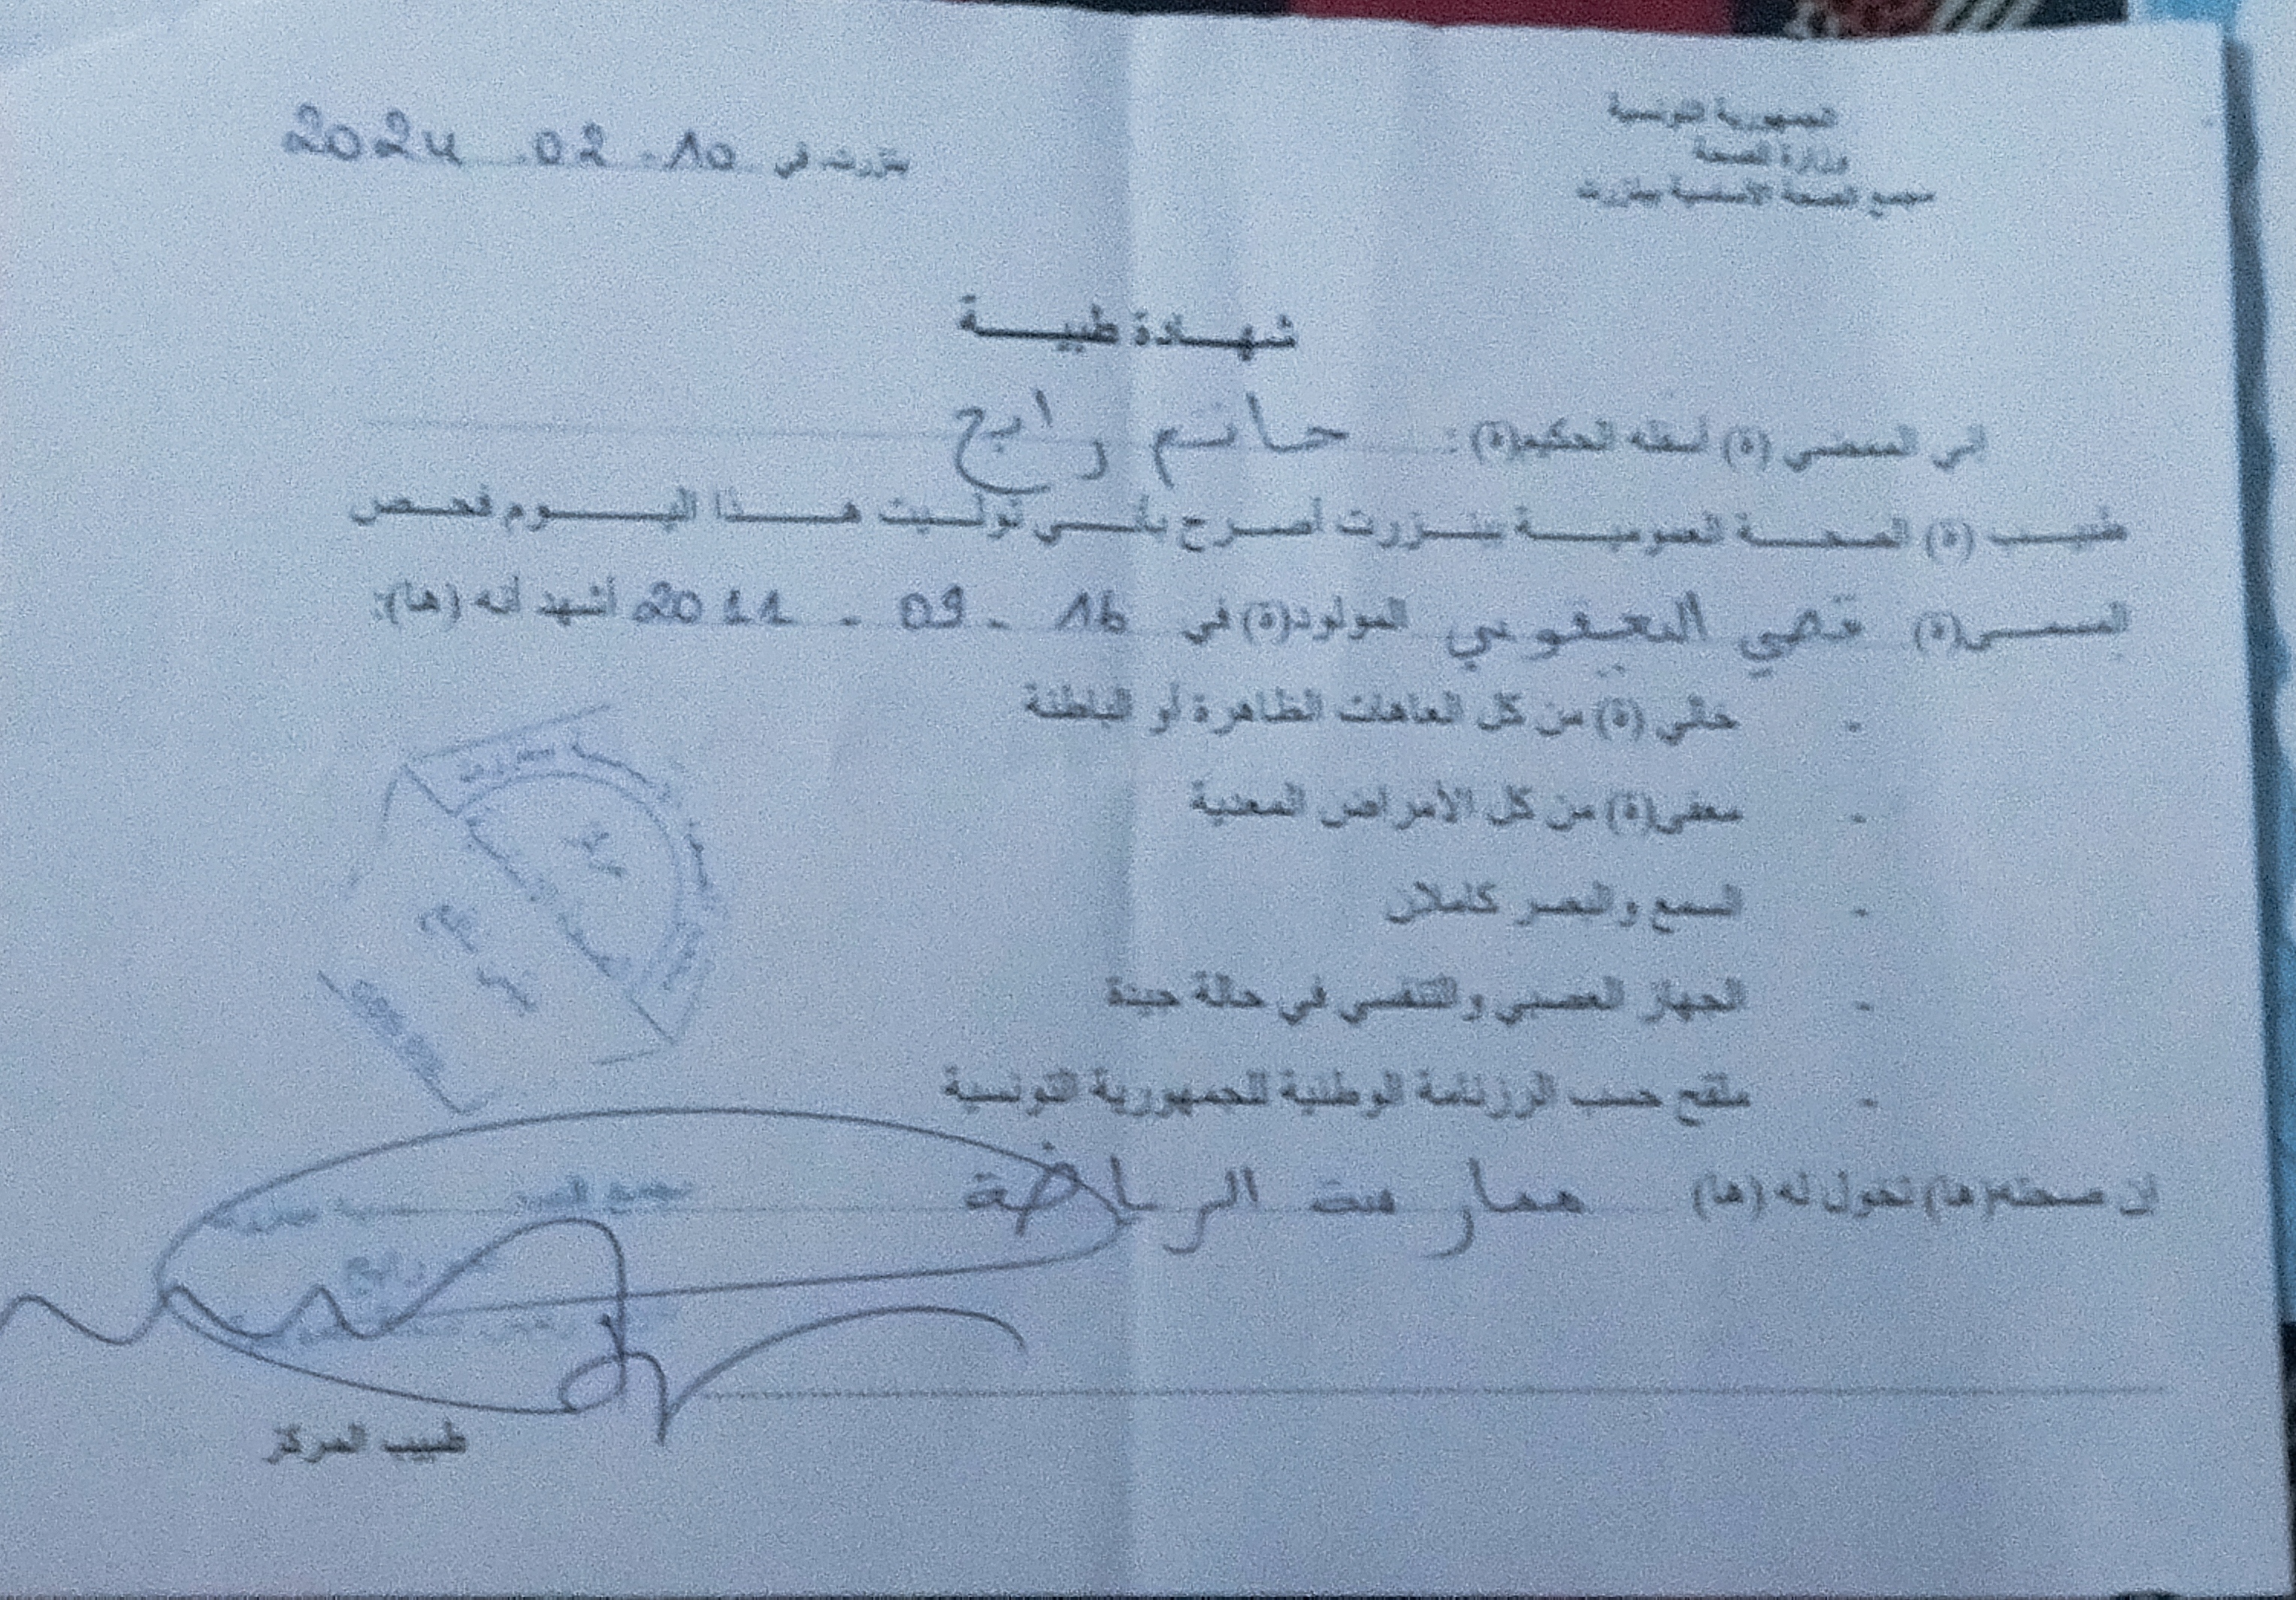 الجمهورية التونسية
وزارة الصحة
مجمع الصحة الأساسية ببنزرت
بنزرت في 10 - 02 - 2024
شهادة طبية
إني الممضي (ة) أسفله الحكيم(ة) : حاتم رابح
طبيب (ة) الصحة العمومية ببنزرت أصرح بأني توليت هذا اليوم فحص
المسمى(ة) قصي اليعقوبي المولود(ة) في 16 - 09 - 2011 أشهد أنه (ها):
- خالي (ة) من كل العاهات الظاهرة أو الباطنة
- معفى(ة) من كل الأمراض المعدية
- السمع والبصر كاملان
- الجهاز العصبي والتنفسي في حالة جيدة
- ملقح حسب الرزنامة الوطنية للجمهورية التونسية
إن صحته(ها) تخول له (ها) ممارست الرياضة
مجمع
رابح
طبيب المركز